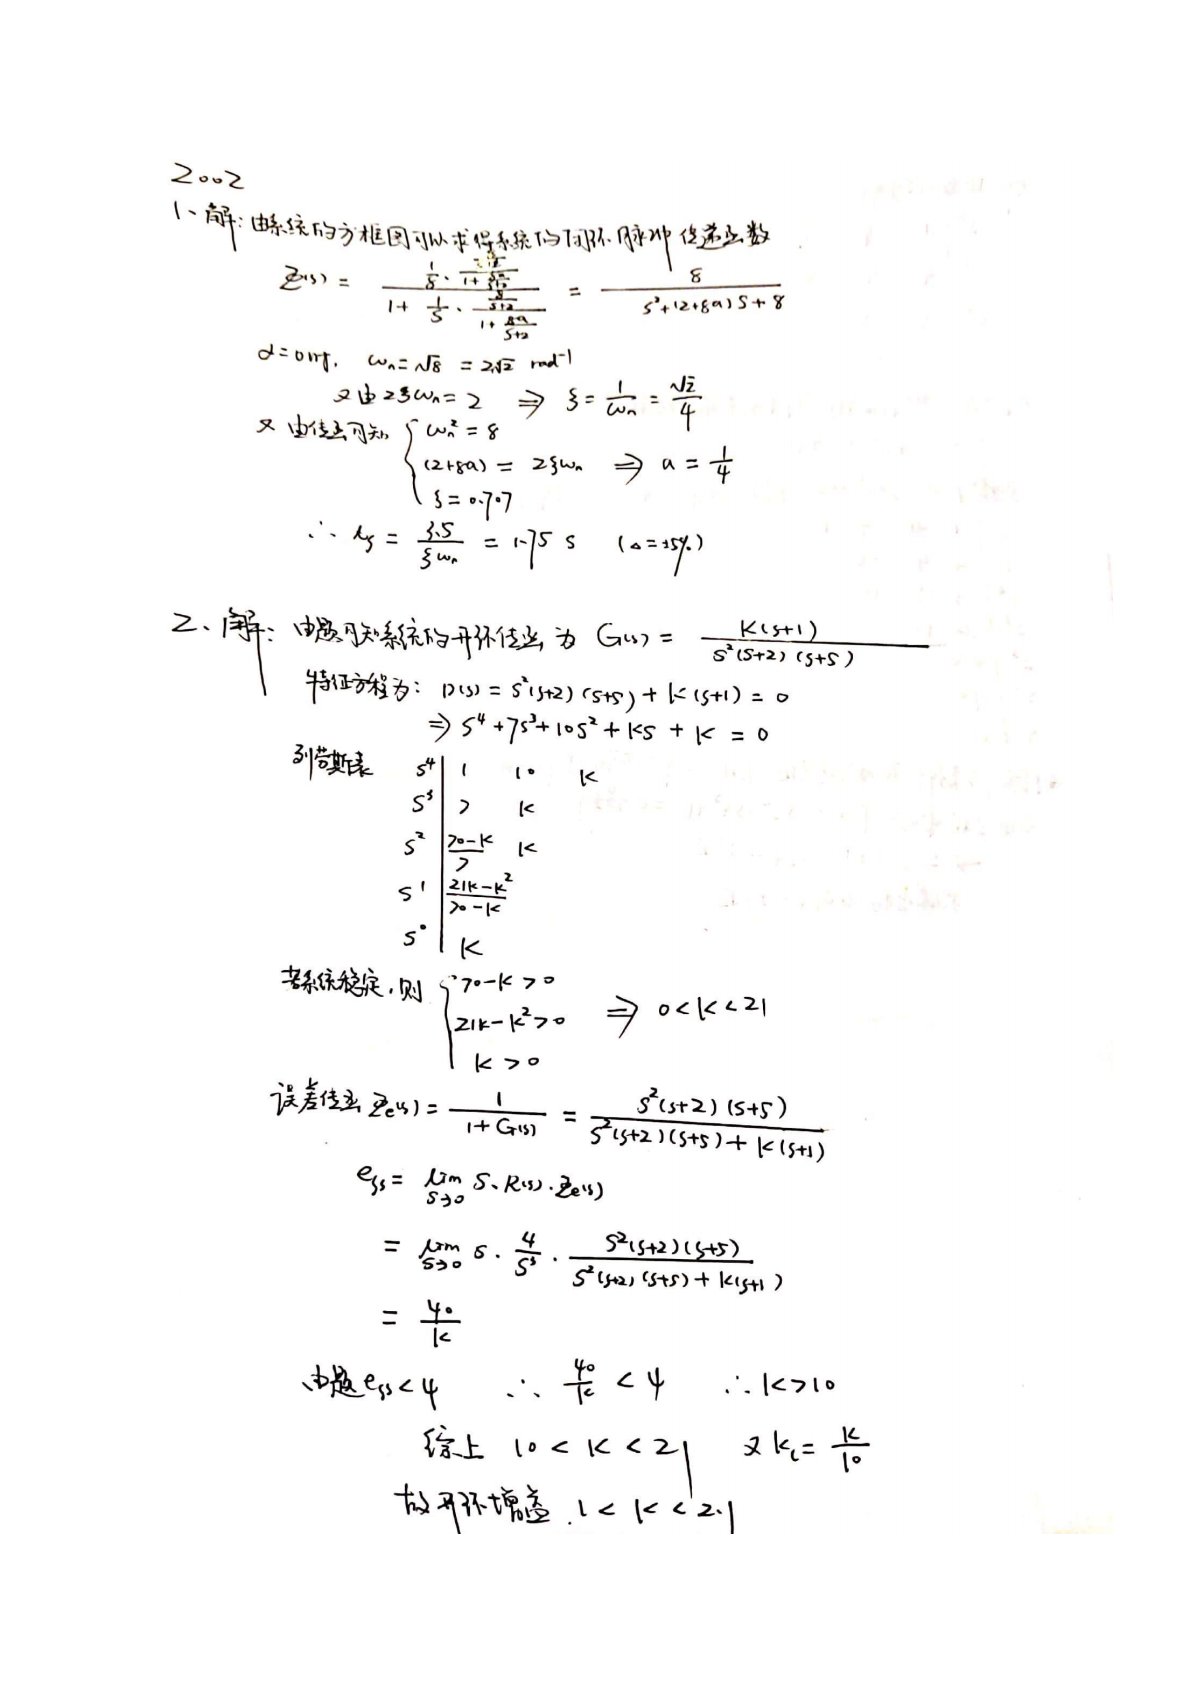 2002
1、解：由系统的方框图可以求得系统的闭环脉冲传递函数
Φ(s) = \frac{\frac{1}{s}·\frac{\frac{8}{s+2}}{1+\frac{8a}{s+2}}}{1+\frac{1}{s}·\frac{\frac{8}{s+2}}{1+\frac{8a}{s+2}}} = \frac{8}{s²+(2+8a)s+8}
α=0时, ωn=√8 = 2√2 rad⁻¹
又由2ξωn=2 ⇒ ξ=\frac{1}{ωn}=\frac{√2}{4}
又由传函可知 { ωn²=8
(2+8a) = 2ξωn ⇒ a = \frac{1}{4}
ξ=0.707
∴ ts = \frac{3.5}{ξωn} = 1.75 s (Δ=±5%)
2、解：由题可知系统的开环传函为 G(s) = \frac{K(s+1)}{s²(s+2)(s+5)}
特征方程为: D(s) = s²(s+2)(s+5)+K(s+1)=0
⇒ s⁴+7s³+10s²+Ks+K=0
列劳斯表 s⁴ | 1 10 K
s³ | 7 K
s² | \frac{70-K}{7} K
s¹ | \frac{21K-K²}{70-K}
s⁰ | K
若系统稳定,则 { 70-K>0
21K-K²>0 ⇒ 0<K<21
K>0
误差传函 Φe(s) = \frac{1}{1+G(s)} = \frac{s²(s+2)(s+5)}{s²(s+2)(s+5)+K(s+1)}
ess = \lim_{s→0} s·R(s)·Φe(s)
= \lim_{s→0} s·\frac{4}{s³}·\frac{s²(s+2)(s+5)}{s²(s+2)(s+5)+K(s+1)}
= \frac{40}{K}
由题ess<4 ∴ \frac{40}{K}<4 ∴K>10
综上 10<K<21 又K_i=\frac{K}{10}
故开环增益 1<K<2.1